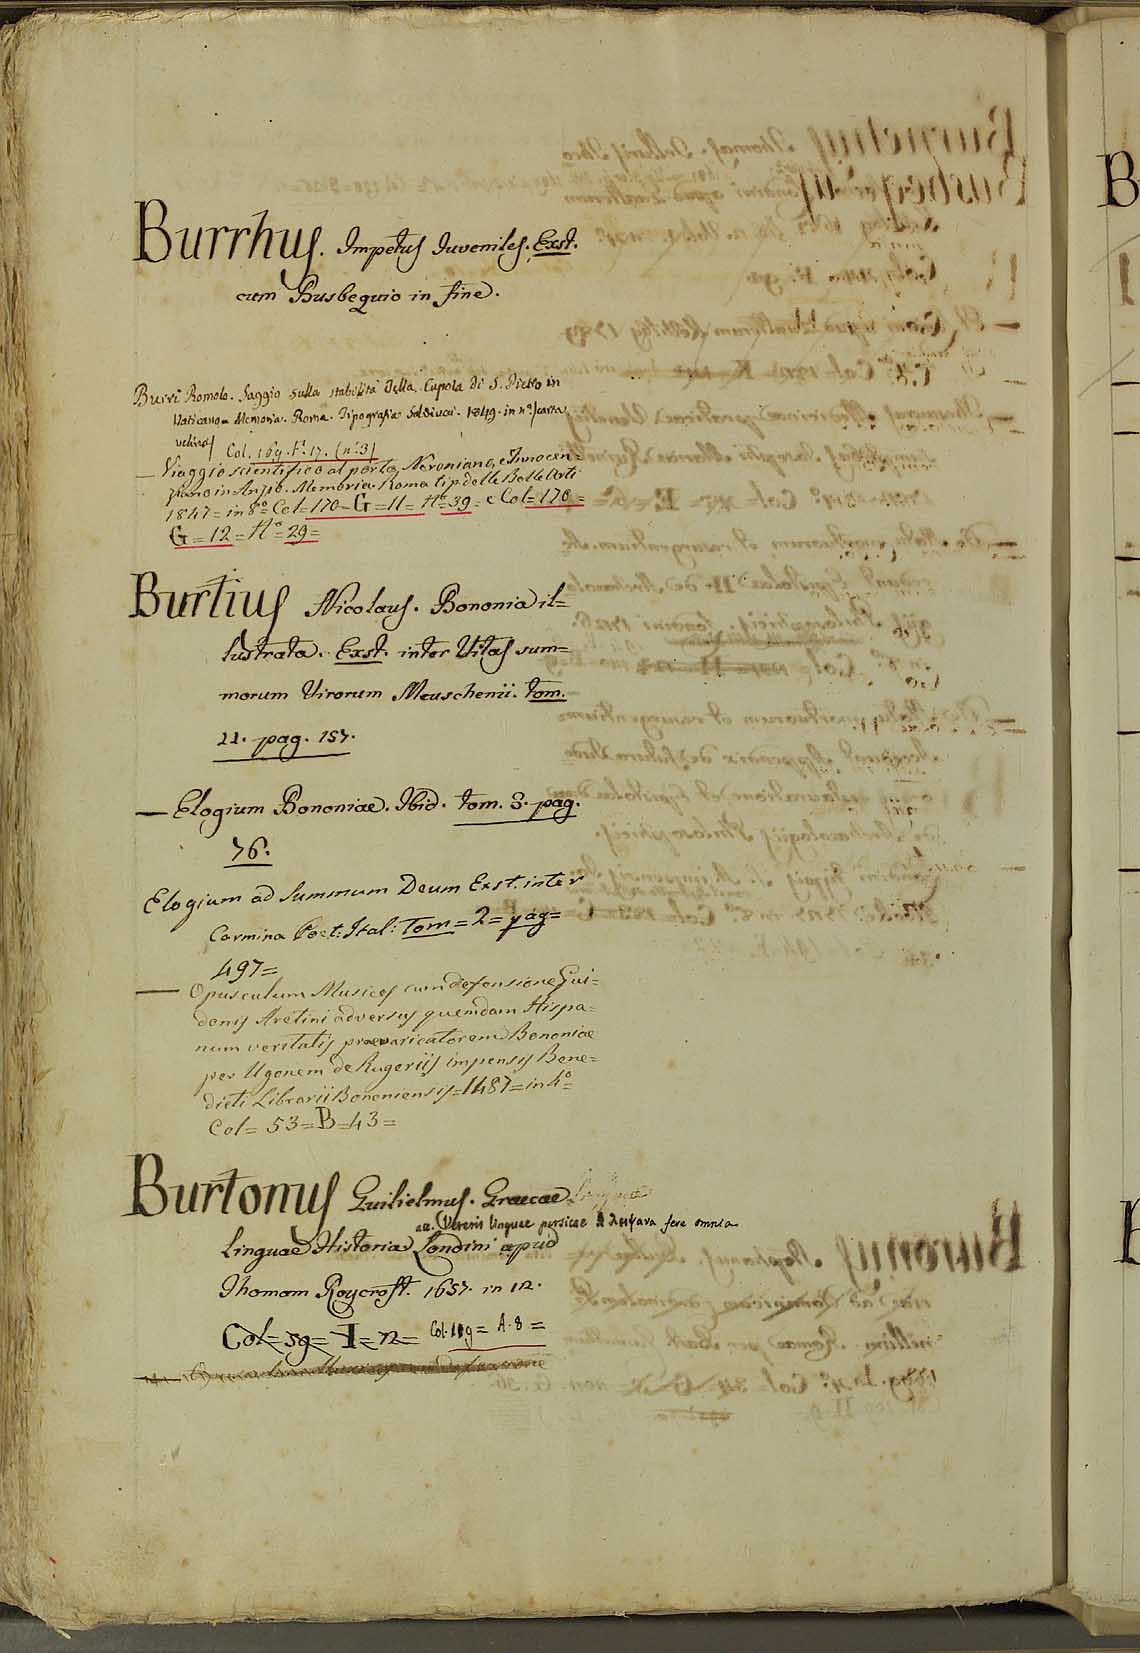 Burrhus. Impetus Iuveniles. Exst.
cum Busbequio in fine.
Burri Romolo. Saggio sulla stabilità della Cupola di S. Pietro in
Vaticano = Memoria. Roma. Tipografia Salviucci. 1849. in 4.° (carta
velina)
Col. 169. F. 17. (n. 3)
— Viaggio scientifico al porto Neroniano, e Innocen=
ziano in Anzio. Memoria. Roma tip. delle Belle Arti
1847 = in 8.° Col = 170 = G = 11 = N.° 39 = e Col = 170 =
G = 12 = N.° = 29 =
Burtius Nicolaus. Bononia il=
lustrata. Exst. inter Vitas sum=
morum Virorum Meuschenii. tom.
11. pag. 157.
— Elogium Bononiae. Ibid. tom. 3. pag.
76.
Elogium ad Summum Deum Exst. inter
Carmina Poet: Ital: Tom = 2 = pag =
497 =
— Opusculum Musices cum defensione Gui=
donis Aretini adversus quemdam Hispa=
num veritatis praevaricatorem Bononiae
per Ugonem de Rugeriis impensis Bene=
dicti Librarii Bononiensis = 1487 = in 4.° =
Col = 53 = B = 43 =
Burtonus Guilielmus. Graecae
Veteris linguae persicae λειψανα fere omnia
Linguae Historia Londini apud
Thomam Roycroft. 1657. in 12.
Col = 59 = I = 12 = Col. 119 = A. 8 =